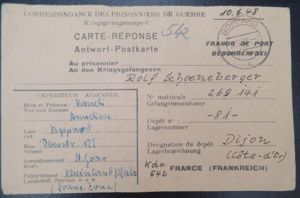 CORRESPONDANCE DES PRISONNIERS DE GUERRE
Kriegsgefangenenpost
10.6.48
CARTE-RÉPONSE
Antwort-Postkarte
542
BOPPARD
FRANCO DE PORT
GEBÜHRENFREI
Au prisonnier
An den Kriegsgefangenen
Rolf Schoeneberger
EXPÉDITEUR ABSENDER
Nom et Prénom
Vor- und Zuname
Anneliese
Lieu
Ort
Boppard
Rue
Straße
125
Arrondissement
Kreis
St. Goar
Département
Landesteil, Provinz
Rheinland/Pfalz
franz. Zone
N° matricule
Gefangenennummer
268 141
Dépôt n°
Lagernummer
-81-
Désignation du dépôt
Lagerbezeichnung
Dijon
(Côte-d'Or)
Kdo
542
FRANCE (FRANKREICH)